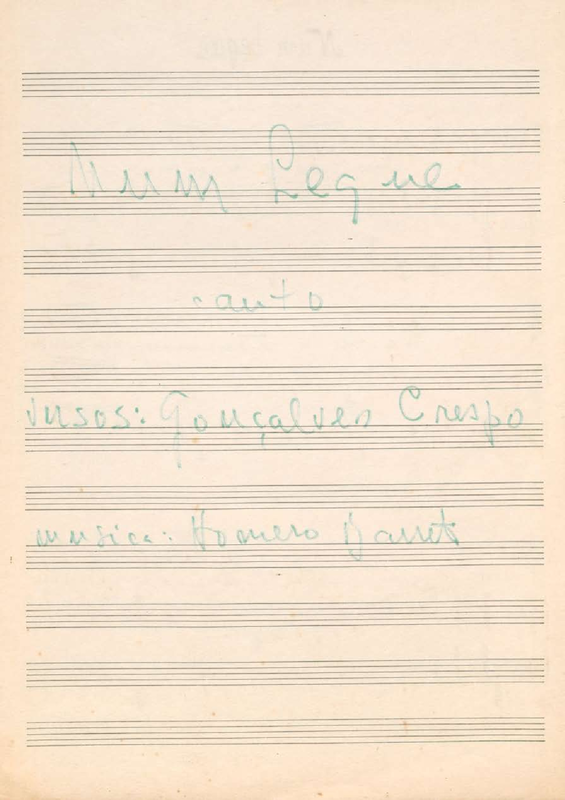 Num Leque
canto
versos: Gonçalves Crespo
musica: Homero Barreto